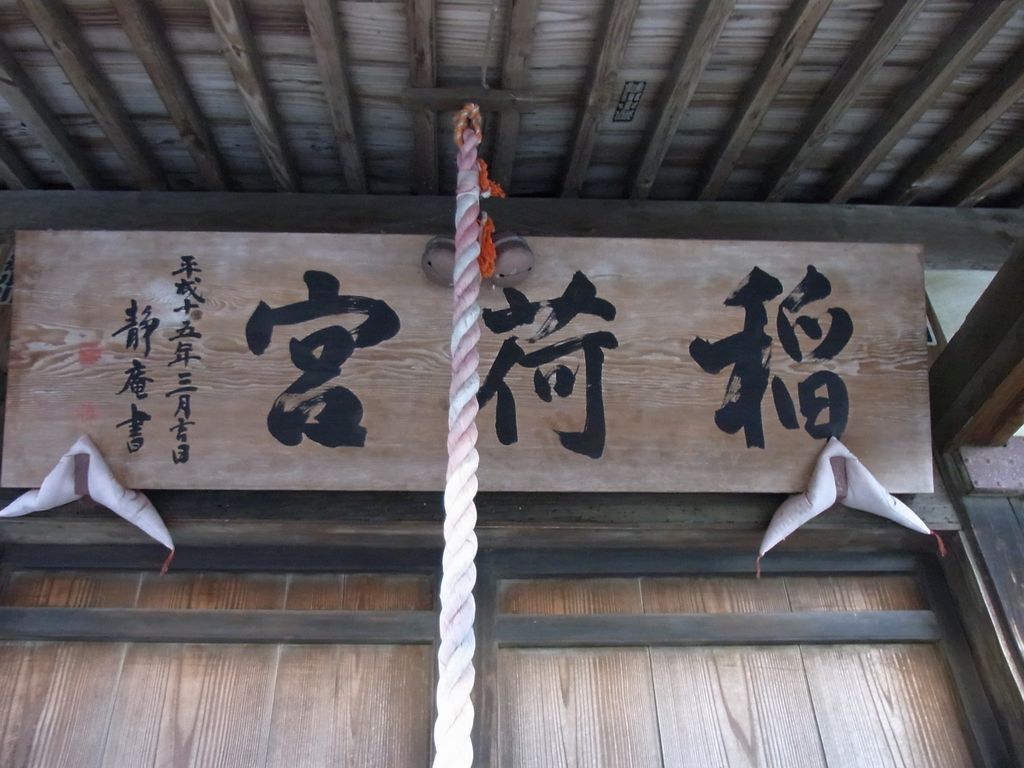 稲荷宮
平成十五年三月吉日
静庵書